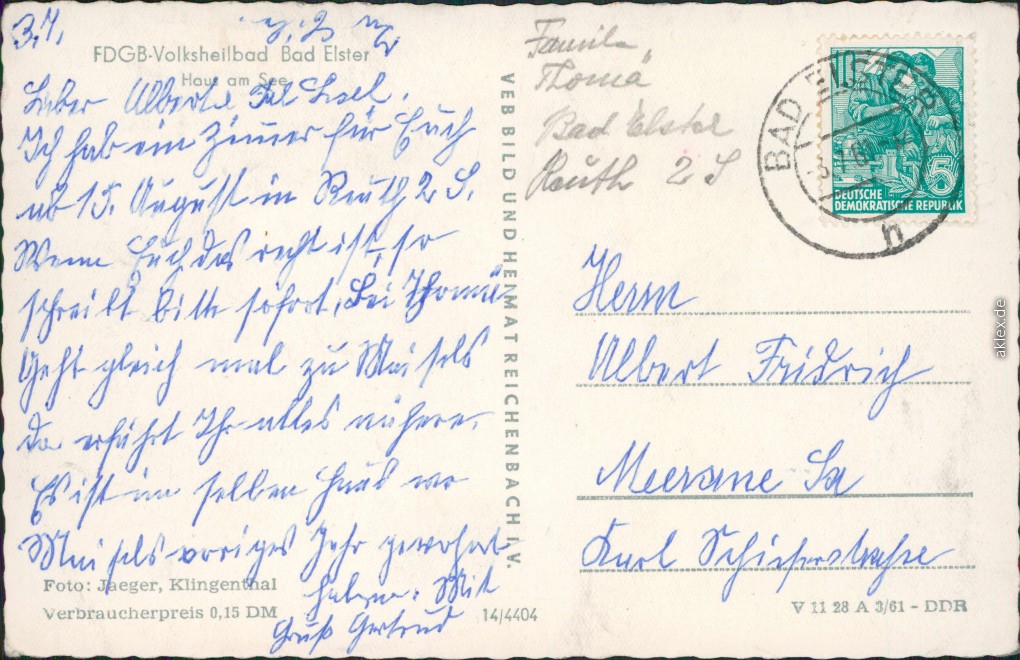 3.7.
FDGB-Volksheilbad Bad Elster
Haus am See
Lieber Albert
Ich hab ein Zimmer für Euch
ab 15. August in Reuth 2 S.
Wenn Euch das recht ist, so
schreibt bitte sofort, bei Thomä
Geht gleich mal zu Meisels
da erfährt Ihr alles nähere.
Es ist im selben Haus wo
Meisels voriges Jahr gewohnt
haben. Mit
Gruß Gertrud
Foto: Jaeger, Klingenthal
Verbraucherpreis 0,15 DM
14/4404
VEB BILD UND HEIMAT REICHENBACH I.V.
Thomä
Bad Elster
Reuth 2 S
BAD ELSTER
10
5
DEUTSCHE
DEMOKRATISCHE REPUBLIK
h
Herrn
Albert Fridrich
Meerane Sa
Karl Schieferstrahse
V 11 28 A 3/61 - DDR
aklex.de